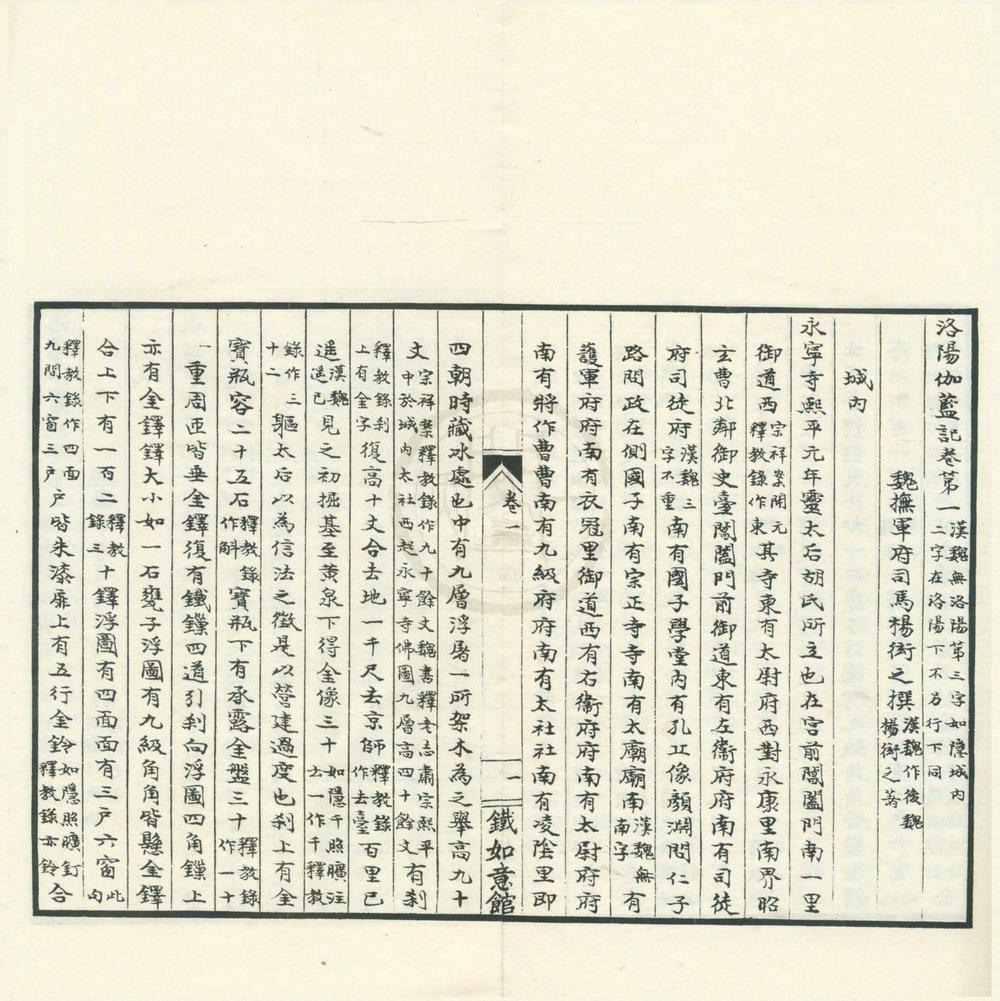 洛陽伽藍記卷第一漢魏無洛陽第三字如隱城內二字在洛陽下不另行下同
魏撫軍府司馬楊衒之撰漢魏作後魏楊衒之著
城內
永寧寺熙平元年靈太后胡氏所立也在宮前閶闔門南一里
御道西宗祥案開元釋教錄作東其寺東有太尉府西對永康里南界昭
玄曹北鄰御史臺閶闔門前御道東有左衞府府南有司徒
府司徒府漢魏三字不重南有國子學堂內有孔丘像顏淵問仁子
路問政在側國子南有宗正寺寺南有太廟廟南漢魏無南字有
護軍府府南有衣冠里御道西有右衞府府南有太尉府府
南有將作曹曹南有九級府府南有太社社南有凌陰里即
卷一
一
鐵如意館
四朝時藏冰處也中有九層浮屠一所架木為之舉高九十
丈宗祥案釋教錄作九十餘丈魏書釋老志肅宗熙平中於城內太社西起永寧寺佛圖九層高四十餘丈有刹
釋教錄刹上有金字復高十丈合去地一千尺去京師釋教錄作去臺百里已
遥漢魏遥已見之初掘基至黃泉下得金像三十如隱千照曠注云一作千釋教
錄作三十二軀太后以為信法之徵是以營建過度也刹上有金
寶瓶容二十五石釋教錄作斛寶瓶下有承露金盤三十釋教錄作一十
一重周匝皆垂金鐸復有鐵鏁四道引刹向浮圖四角鏁上
亦有金鐸鐸大小如一石甕子浮圖有九級角角皆懸金鐸
合上下有一百二釋教錄三十鐸浮圖有四面面有三戶六窗此句
釋教錄作四面九間六窗三戶戶皆朱漆扉上有五行金鈴如隱照曠釘釋教錄亦鈴合